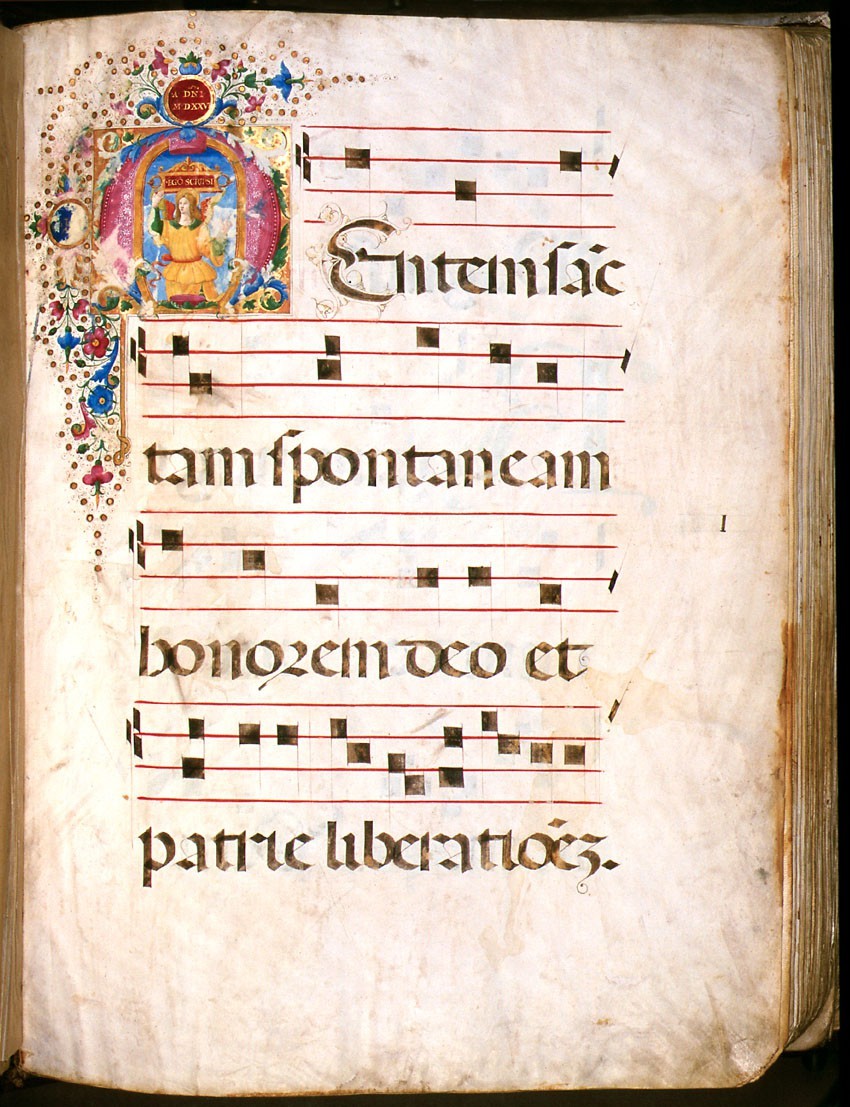 A DNI
M DXXVI
EGO SCRIPSI
MEntem sāc
tam spontaneam
I
honorem deo et
patrie liberatiōēz.